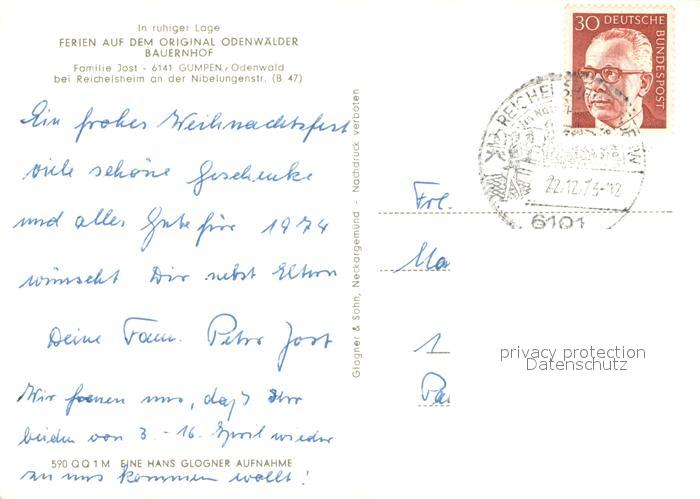 In ruhiger Lage
FERIEN AUF DEM ORIGINAL ODENWÄLDER
BAUERNHOF
Familie Jost - 6141 GUMPEN/Odenwald
bei Reichelsheim an der Nibelungenstr. (B 47)
Ein frohes Weihnachtsfest
viele schöne Geschenke
und alles Gute für 1974
wünscht Dir nebst Eltern
Deine Fam. Peter Jost
Wir freuen uns, daß Ihr
beiden vom 3. - 16. April wieder
zu uns kommen wollt!
590 QQ 1 M EINE HANS GLOGNER AUFNAHME
Glogner & Sohn, Neckargemünd - Nachdruck verboten
30 DEUTSCHE
BUNDESPOST
REICHELSHEIM
22.12.73-12
6101
Frl.
Ma
1
Pa
privacy protection
Datenschutz